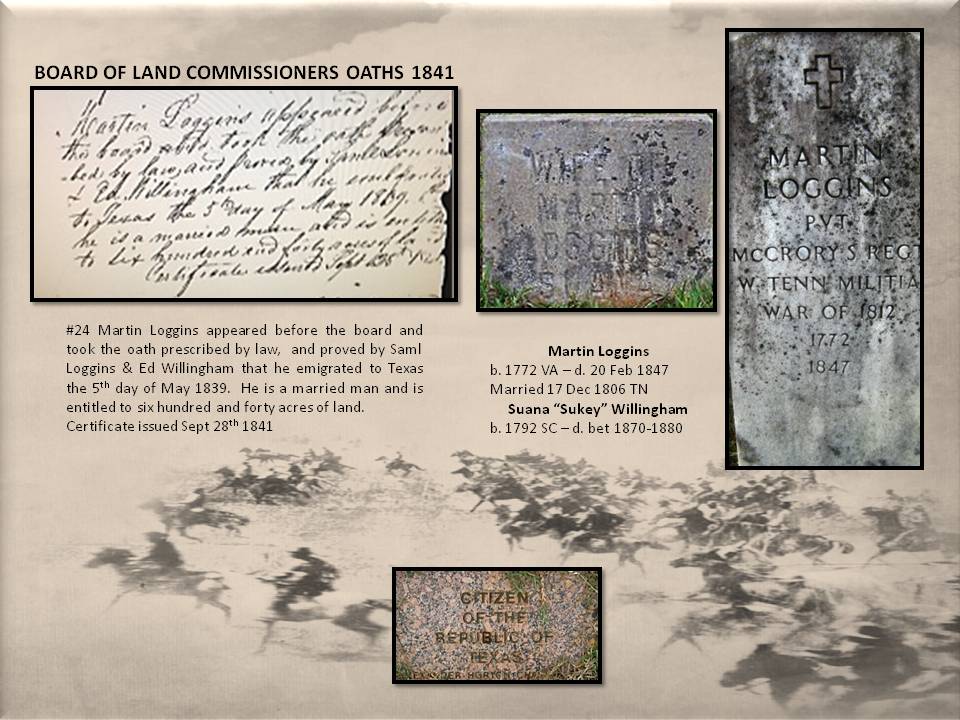 BOARD OF LAND COMMISSIONERS OATHS 1841
Martin Loggins appeared before
the board and took the oath
by law, and proved by
& Ed Willingham that he emigrated
to Texas the 5th day of May 1839.
he is a married man and is
to six hundred and forty acres of
Certificate issued Sept
#24 Martin Loggins appeared before the board and
took the oath prescribed by law, and proved by Saml
Loggins & Ed Willingham that he emigrated to Texas
the 5th day of May 1839. He is a married man and is
entitled to six hundred and forty acres of land.
Certificate issued Sept 28th 1841
WIFE OF
MARTIN
LOGGINS
Martin Loggins
b. 1772 VA – d. 20 Feb 1847
Married 17 Dec 1806 TN
Suana “Sukey” Willingham
b. 1792 SC – d. bet 1870-1880
MARTIN
LOGGINS
PVT
MCCRORY'S REGT
W. TENN MILITIA
WAR OF 1812
1772
1847
CITIZEN
OF THE
REPUBLIC OF
TEXAS
HORTON